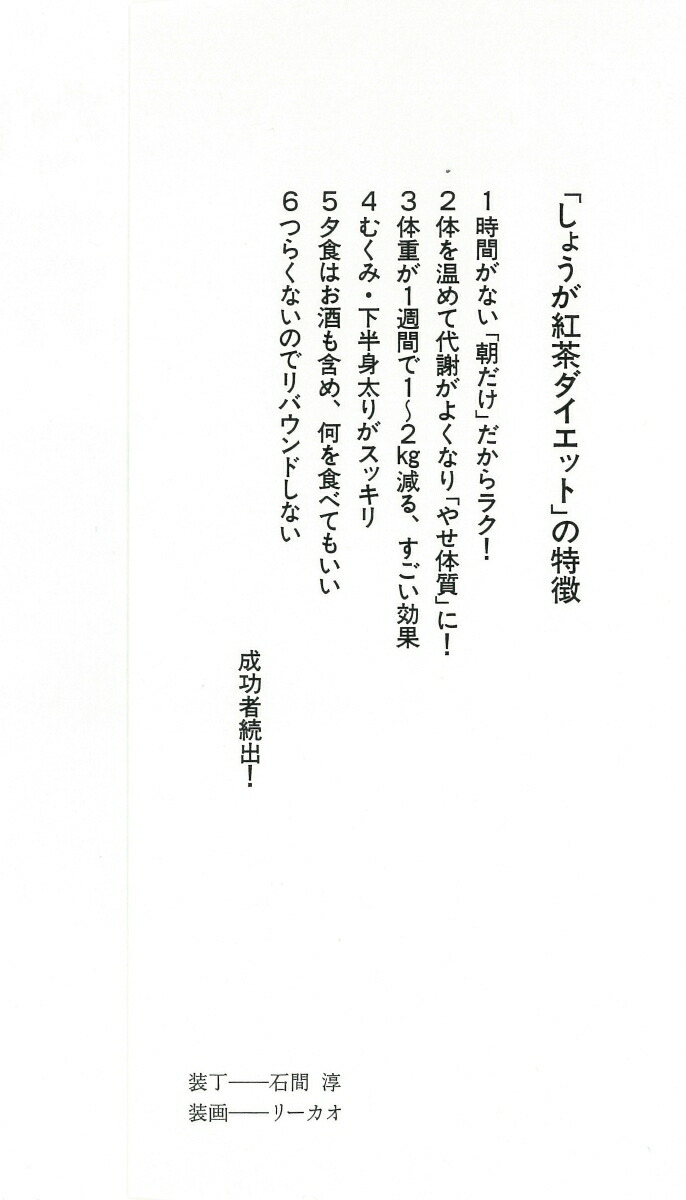 「しょうが紅茶ダイエット」の特徴
1 時間がない「朝だけ」だからラク！
2 体を温めて代謝がよくなり「やせ体質」に！
3 体重が1週間で1〜2kg減る、すごい効果
4 むくみ・下半身太りがスッキリ
5 夕食はお酒も含め、何を食べてもいい
6 つらくないのでリバウンドしない
成功者続出！
装丁――石間 淳
装画――リーカオ